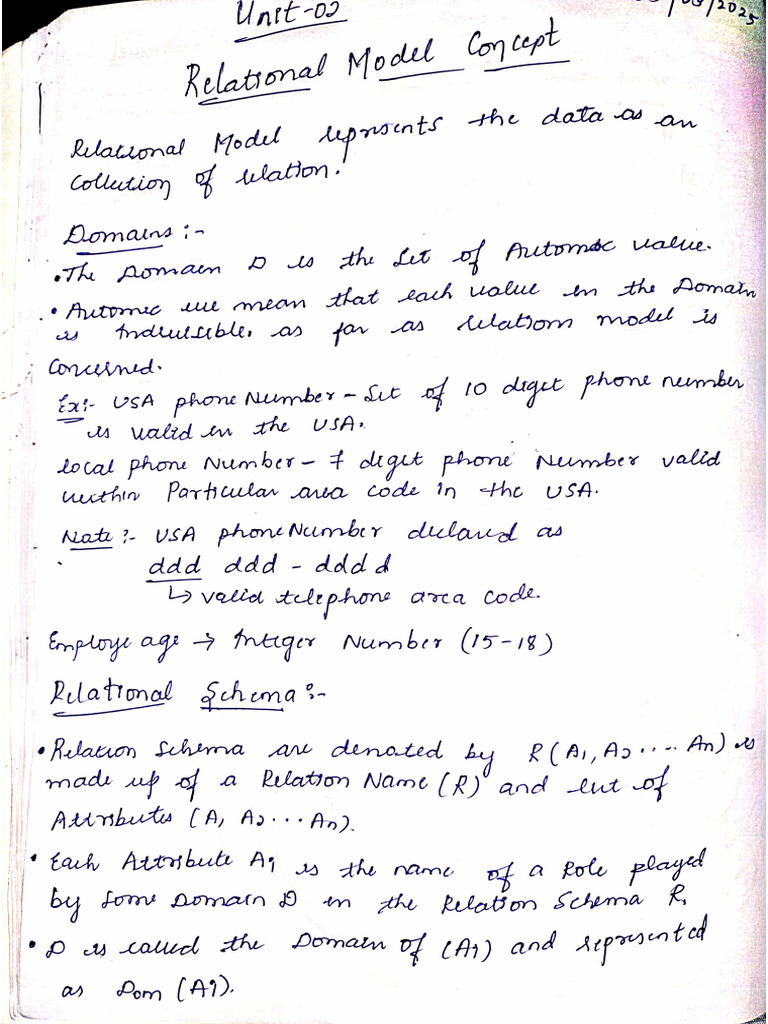 Unit-02
/2025
Relational Model Concept
Relational Model represents the data as an
Collection of relation.
Domains :-
• The Domain D is the Set of Automic value.
• Automic we mean that each value in the Domain
is Indivisible. as far as relation model is
Concerned.
Ex:- USA phone Number - Set of 10 digit phone number
is valid in the USA.
local phone Number - 7 digit phone Number valid
within Particular area code in the USA.
Note :- USA phone Number declared as
ddd ddd - dddd
↳ valid telephone area code.
Employe age → Integer Number (15-18)
Relational Schema :-
• Relation Schema are denoted by R(A1, A2 .... An) is
made up of a Relation Name (R) and list of
Attributes (A1 A2 ... An).
• Each Attribute Ai is the name of a Role played
by some Domain D in the Relation Schema R.
• D is called the Domain of (Ai) and represented
as Dom (Ai).